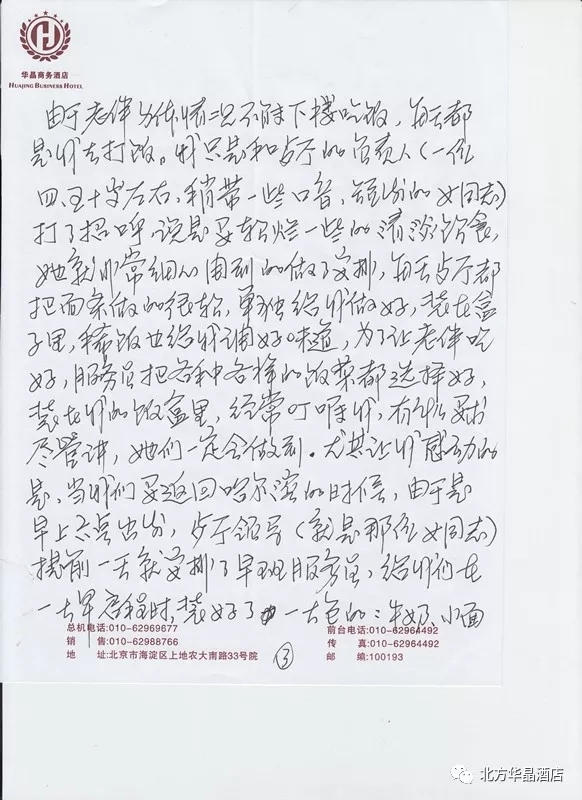 华晶商务酒店
HUAJING BUSINESS HOTEL
由于老伴身体情况不能下楼吃饭，每天都
是我去打饭。我只是和歺厅的负责人（一位
四、五十岁左右，稍带一些口音，短发的女同志）
打了招呼，说是要软烂一些的清淡饮食，
她就非常细心周到的做了安排，每天歺厅都
把面条做的很软，单独给我做好，装在盒
子里，稀饭也给我调好味道，为了让老伴吃
好，服务员把各种各样的饭菜都选择好，
装在我的饭盒里，经常叮嘱我，有什么要求
尽管讲，她们一定会做到。尤其让我感动的
是，当我们要返回哈尔滨的时候，由于是
早上六点出发，歺厅领导（就是那位女同志）
提前一天就安排了早班服务员，给我们在
一大早启程时，装好了一大包的：牛奶、小面
总机电话:010-62969677
前台电话:010-62964492
销 售:010-62988766
传 真:010-62964492
地 址:北京市海淀区上地农大南路33号院
邮 编:100193
③
北方华晶酒店